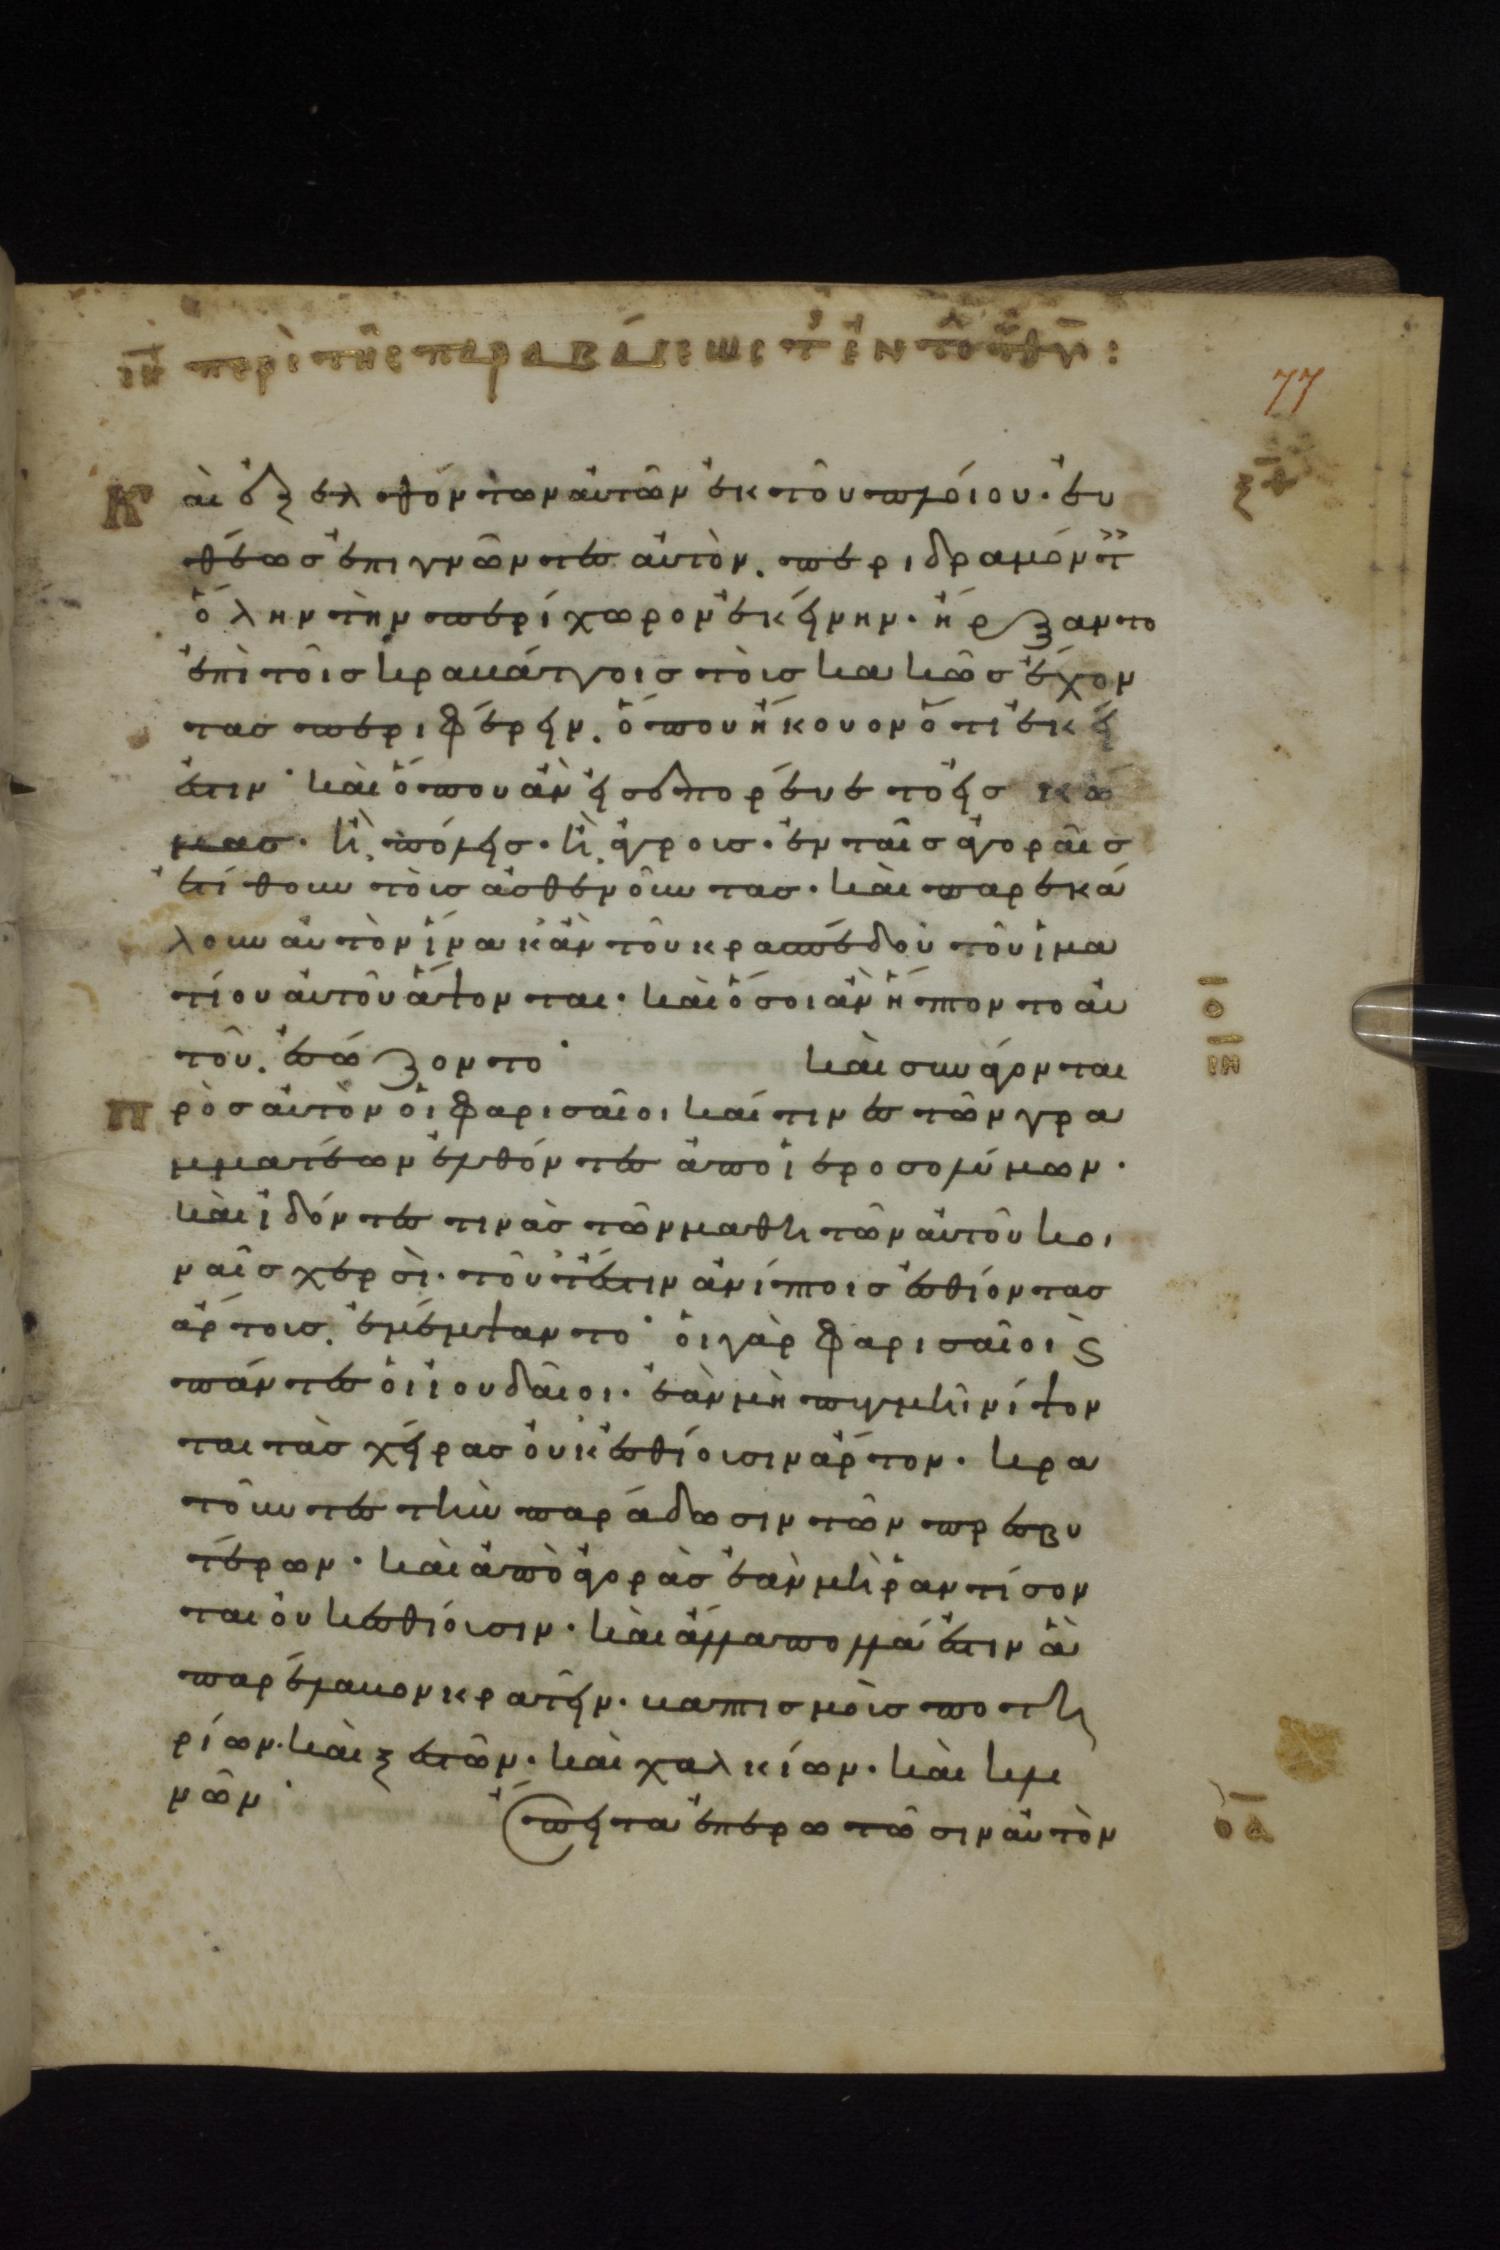 ιη περὶ τῆς παραβάσεως τ ἐντο τοῦ θυ:
77
Καὶ ἐξελθόντων αὐτῶν ἐκ τοῦ πλοίου· ἐυ
θέως ἐπιγνῶντες αὐτὸν. περιδραμόντ
ὅλην τὴν περίχωρον ἐκείνην· ἤρξαντο
ἐπὶ τοῖς κραβάττοις τοὺς κακῶς ἔχον
τας περιφέρειν. ὅπου ἤκουον ὅτι ἐκεῖ
ἐστιν· καὶ ὅπου ἂν εἰσεπορέυετο εἰς κώ
μας· ἢ πόλεις· ἢ ἀγρους· ἐν ταῖς ἀγοραῖς
ἐτίθουν τοὺς ἀσθενοῦντας· καὶ παρεκά
λουν αὐτὸν ἵνα κἂν τοῦ κρασπέδου τοῦ ἱμα
τίου αὐτοῦ ἅψονται· καὶ ὅσοι ἂν ἥπτοντο αὐ
τοῦ. ἐσώζοντο· καὶ συνάγονται
Πρὸς αὐτὸν οἱ φαρισαῖοι καί τινες τῶν γρα
μματέων ἐλθόντες ἀπο ἱεροσολύμων·
καὶ ἰδόντες τινὰς τῶν μαθητῶν αὐτοῦ κοι
ναῖς χερσὶ· τοῦτ ἔστιν ἀνίπτοις ἐσθίοντας
ἄρτους. ἐμέμψαντο· οἱ γὰρ φαρισαῖοι ϛ
πάντες οἱ ἰουδαῖοι· ἐὰν μὴ πυγμῆ νίψον
ται τὰς χεῖρας οὐκ ἐσθίουσιν ἄρτον· κρα
τοῦντες τὴν παράδωσιν τῶν πρεσβυ
τέρων· καὶ ἀπὸ ἀγορὰς ἐὰν μὴ ῥαντίσον
ται οὐκ ἐσθίουσιν· καὶ ἄλλα πολλά ἐστιν ἃ
παρέλαβον κρατεῖν· βαπτισμοὺς ποτη
ρίων· καὶ ξεστῶν· καὶ χαλκίων· καὶ κλι
νῶν· ἔπειτα ἐπερωτῶσιν αὐτὸν
ξθ
ο
ιη
οα